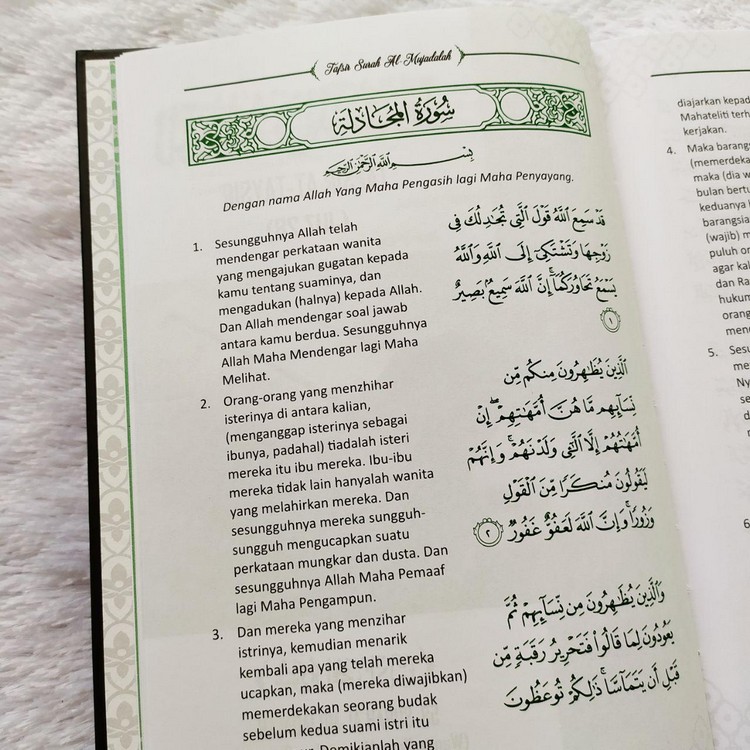 Tafsir Surah Al-Mujadalah
سُورَةُ المُجَادلَة
بِسْمِ اللَّهِ الرَّحْمَٰنِ الرَّحِيمِ
Dengan nama Allah Yang Maha Pengasih lagi Maha Penyayang.
1. Sesungguhnya Allah telah
mendengar perkataan wanita
yang mengajukan gugatan kepada
kamu tentang suaminya, dan
mengadukan (halnya) kepada Allah.
Dan Allah mendengar soal jawab
antara kamu berdua. Sesungguhnya
Allah Maha Mendengar lagi Maha
Melihat.
قَدْ سَمِعَ اللَّهُ قَوْلَ الَّتِي تُجَادِلُكَ فِي
زَوْجِهَا وَتَشْتَكِي إِلَى اللَّهِ وَاللَّهُ
يَسْمَعُ تَحَاوُرَكُمَا ۚ إِنَّ اللَّهَ سَمِيعٌ بَصِيرٌ
١
2. Orang-orang yang menzhihar
isterinya di antara kalian,
(menganggap isterinya sebagai
ibunya, padahal) tiadalah isteri
mereka itu ibu mereka. Ibu-ibu
mereka tidak lain hanyalah wanita
yang melahirkan mereka. Dan
sesungguhnya mereka sungguh-
sungguh mengucapkan suatu
perkataan mungkar dan dusta. Dan
sesungguhnya Allah Maha Pemaaf
lagi Maha Pengampun.
الَّذِينَ يُظَاهِرُونَ مِنكُم مِّن
نِّسَائِهِم مَّا هُنَّ أُمَّهَاتِهِمْ ۖ إِنْ
أُمَّهَاتُهُمْ إِلَّا اللَّائِي وَلَدْنَهُمْ ۚ وَإِنَّهُمْ
لَيَقُولُونَ مُنكَرًا مِّنَ الْقَوْلِ
وَزُورًا ۚ وَإِنَّ اللَّهَ لَعَفُوٌّ غَفُورٌ ٢
3. Dan mereka yang menzihar
istrinya, kemudian menarik
kembali apa yang telah mereka
ucapkan, maka (mereka diwajibkan)
memerdekakan seorang budak
sebelum kedua suami istri itu
Demikianlah yang
وَالَّذِينَ يُظَاهِرُونَ مِن نِّسَائِهِمْ ثُمَّ
يَعُودُونَ لِمَا قَالُوا فَتَحْرِيرُ رَقَبَةٍ مِّن
قَبْلِ أَن يَتَمَاسَّا ۚ ذَٰلِكُمْ تُوعَظُونَ
diajarkan kepad
Mahateliti terh
kerjakan.
4. Maka barangs
(memerdeka
maka (dia w
bulan bertu
keduanya
barangsia
(wajib) m
puluh or
agar kal
dan Ra
hukum
orang
men
5. Sesu
me
Ny
se
d
6